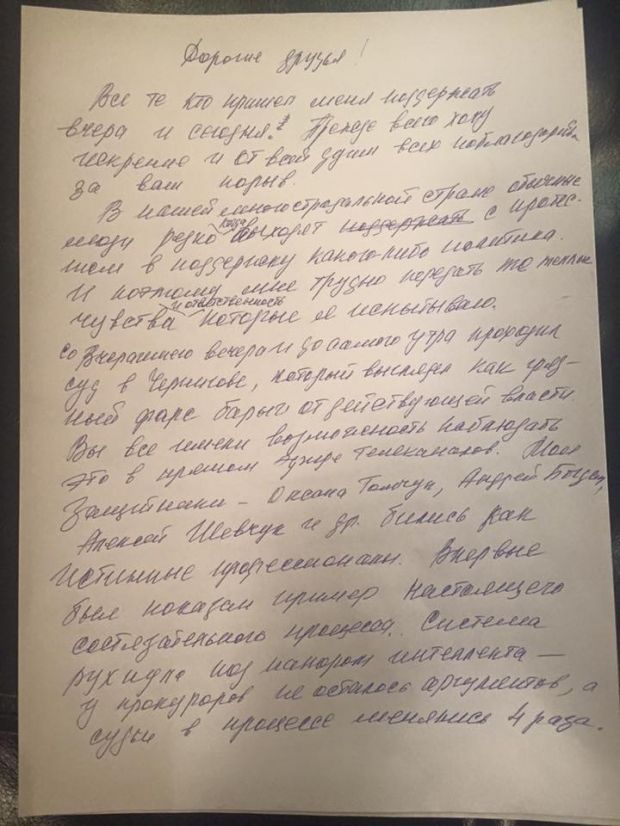 Дорогие друзья!
Все те кто пришел меня поддержать
вчера и сегодня. Прежде всего хочу
искренне и от всей души всех поблагодарить
за ваш порыв.
В нашей многострадальной стране обычные
люди редко когда выходят поддержать с протес-
тием в поддержку какого-либо политика.
И поэтому мне трудно передать те теплые
чувства и ответственность которые я испытываю.
Со вчерашнего вечера и до самого утра проходил
суд в Чернигове, который выглядел как
ный фарс барыг от действующей власти.
Вы все имели возможность наблюдать
это в прямом эфире телеканалов. Мои
защитники – Оксана Томчук, Андрей
Алексей Шевчук и др. бились как
истинные профессионалы. Впервые
был показан пример настоящего
состязательного процесса. Система
рухнула под напором интеллекта –
у прокуроров не осталось аргументов, а
судьи в процессе менялись 4 раза.